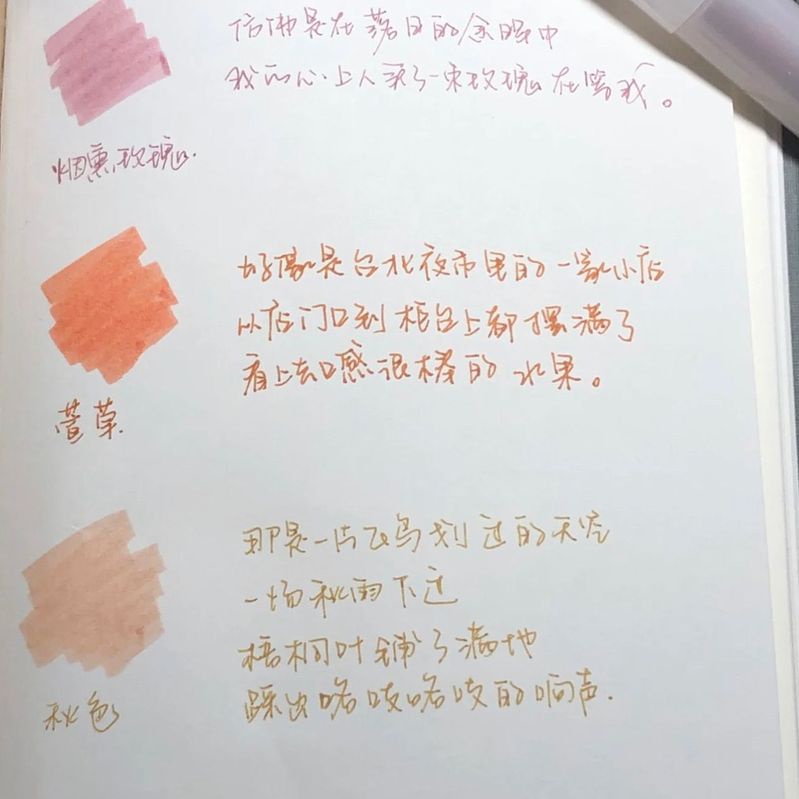 仿佛是在落日的余晖中
我的心上人采了一束玫瑰在等我。
烟熏玫瑰.
好像是台北夜市里的一家小店
从店门口到柜台上都摆满了
看上去口感很棒的水果。
萱草.
那是一片飞鸟划过的天空
一场秋雨下过
梧桐叶铺了满地
踩出咯吱咯吱的响声.
秋色